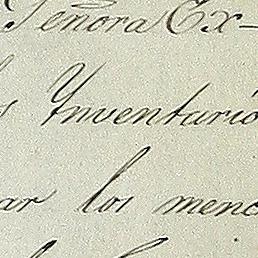 Señora Ex-
s Ynventario
ar los menc